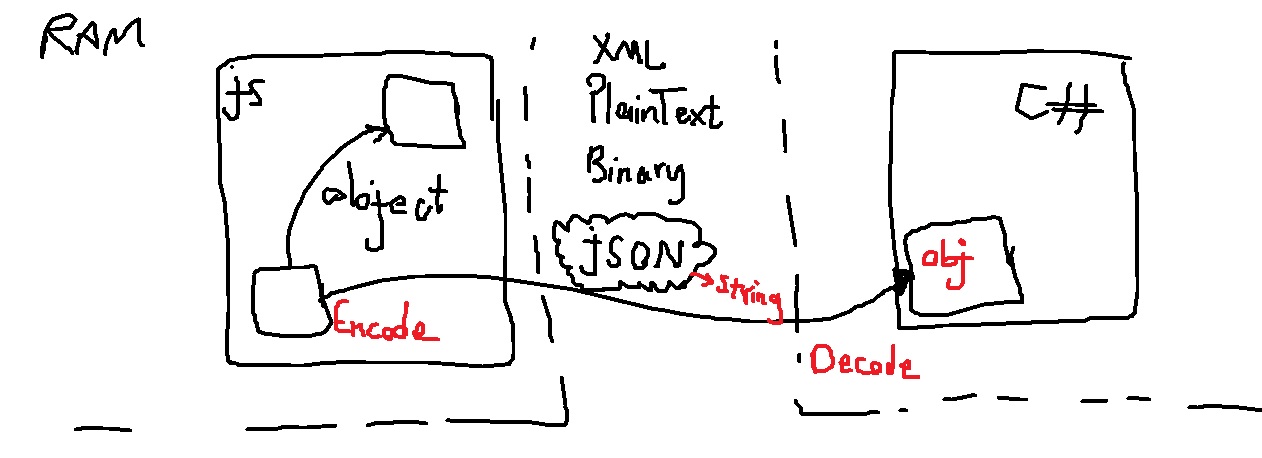 RAM
js
object
Encode
XML
PlainText
Binary
jSON
string
C#
obj
Decode